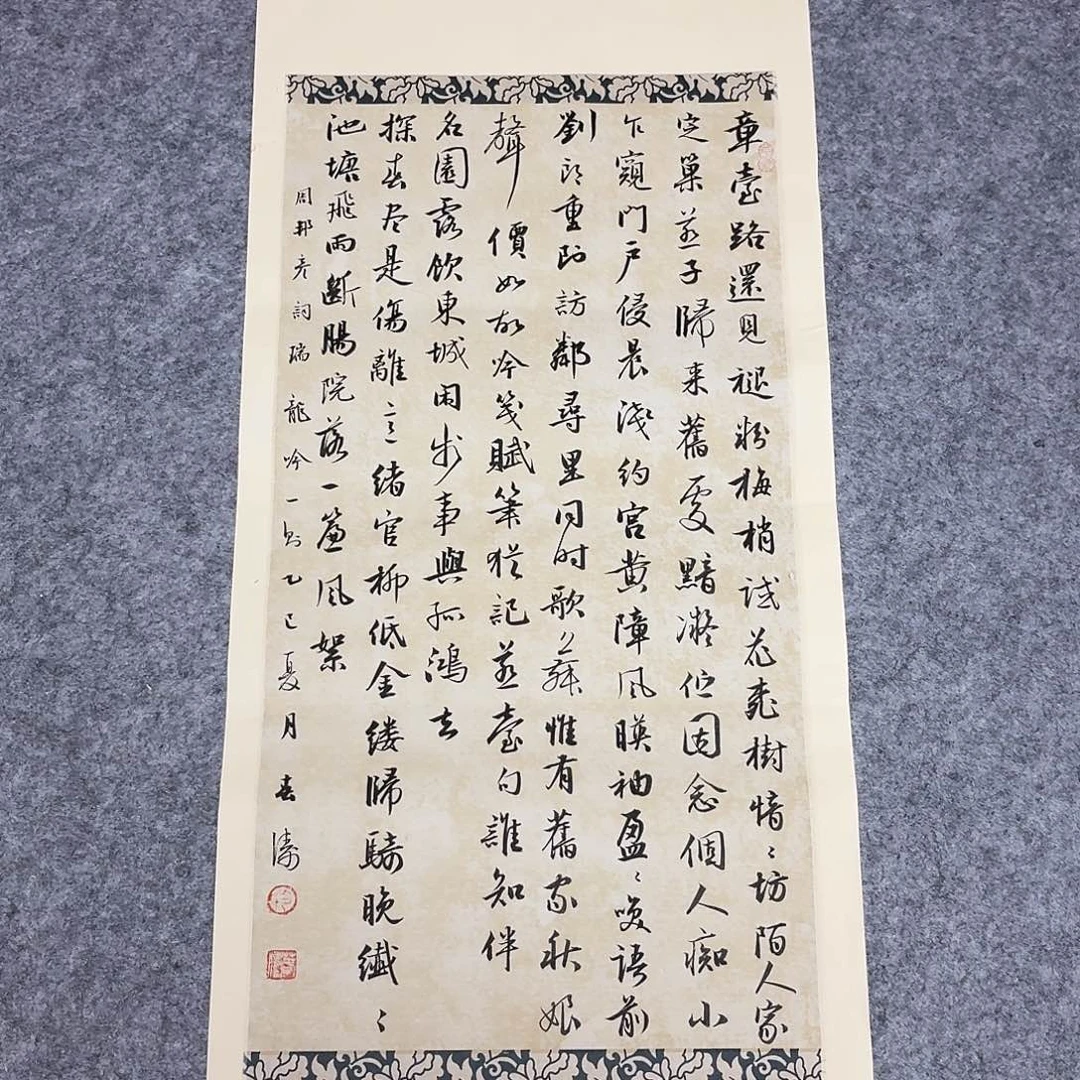 章臺路還見褪粉梅梢試花桃樹愔〻坊陌人家
定巢燕子歸来舊處黯凝佇因念個人痴小
乍窺門戶侵晨淺約宮黄障風映袖盈〻笑語前
劉郎重到訪鄰尋里同时歌舞惟有舊家秋娘
聲價如故吟箋賦筆猶記燕臺句誰知伴
名園露飲東城闲步事與孤鴻去
探春尽是傷離意緒官柳低金缕歸騎晚纖〻
池塘飛雨斷腸院落一簾風絮
周邦彦詞瑞龍吟一則乙巳夏月春濤